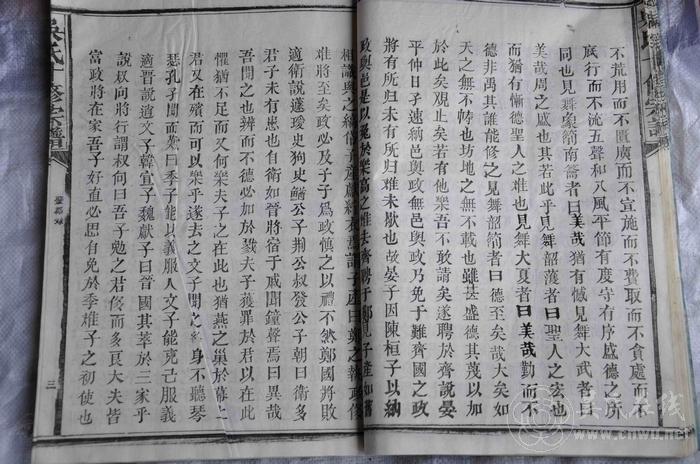 不荒用而不匱廣而不宣施而不費取而不貪處而不
底行而不流五聲和八風平節有度守有序盛德之所
同也見舞象箾南籥者曰美哉猶有憾見舞大武者曰
美哉周之盛也其若此乎見舞韶濩者曰聖人之宏也
而猶有慚德聖人之難也見舞大夏者曰美哉勤而不
德非禹其誰能修之見舞韶箾者曰德至矣哉大矣如
天之無不幬也坊地之無不載也雖甚盛德其蔑以加
於此矣觀止矣若有他樂吾不敢請矣遂聘於齊說晏
平仲曰子速納邑與政無邑與政乃免于難齊國之政
將有所归未有所归难未歇也故晏子因陳桓子以納
政與邑是以冤於欒高之难去齊聘于鄭見子產如舊
相識與之縞
難将至矣政必及子子爲政慎之以禮不然鄭國將敗
適衛說蘧瑗史狗史鰌公子荆公叔發公子朝曰衛多
君子未有患也自衛如晉將宿于戚聞鐘聲焉曰異哉
吾聞之也辨而不德必加於戮夫子獲罪於君以在此
懼猶不足而又何樂夫子之在此也猶燕之巢於幕上
君又在殯而可以樂乎遂去之文子聞之終身不聽琴
瑟孔子聞而
適晋說趙文子韓宣子魏獻子曰晉國其萃於三家乎
說叔向將行謂叔向曰吾子勉之君侈而多良大夫皆
富政將在家吾子好直必思自免於季雉子之初使也
三
吳氏在线
www.cnwu.net